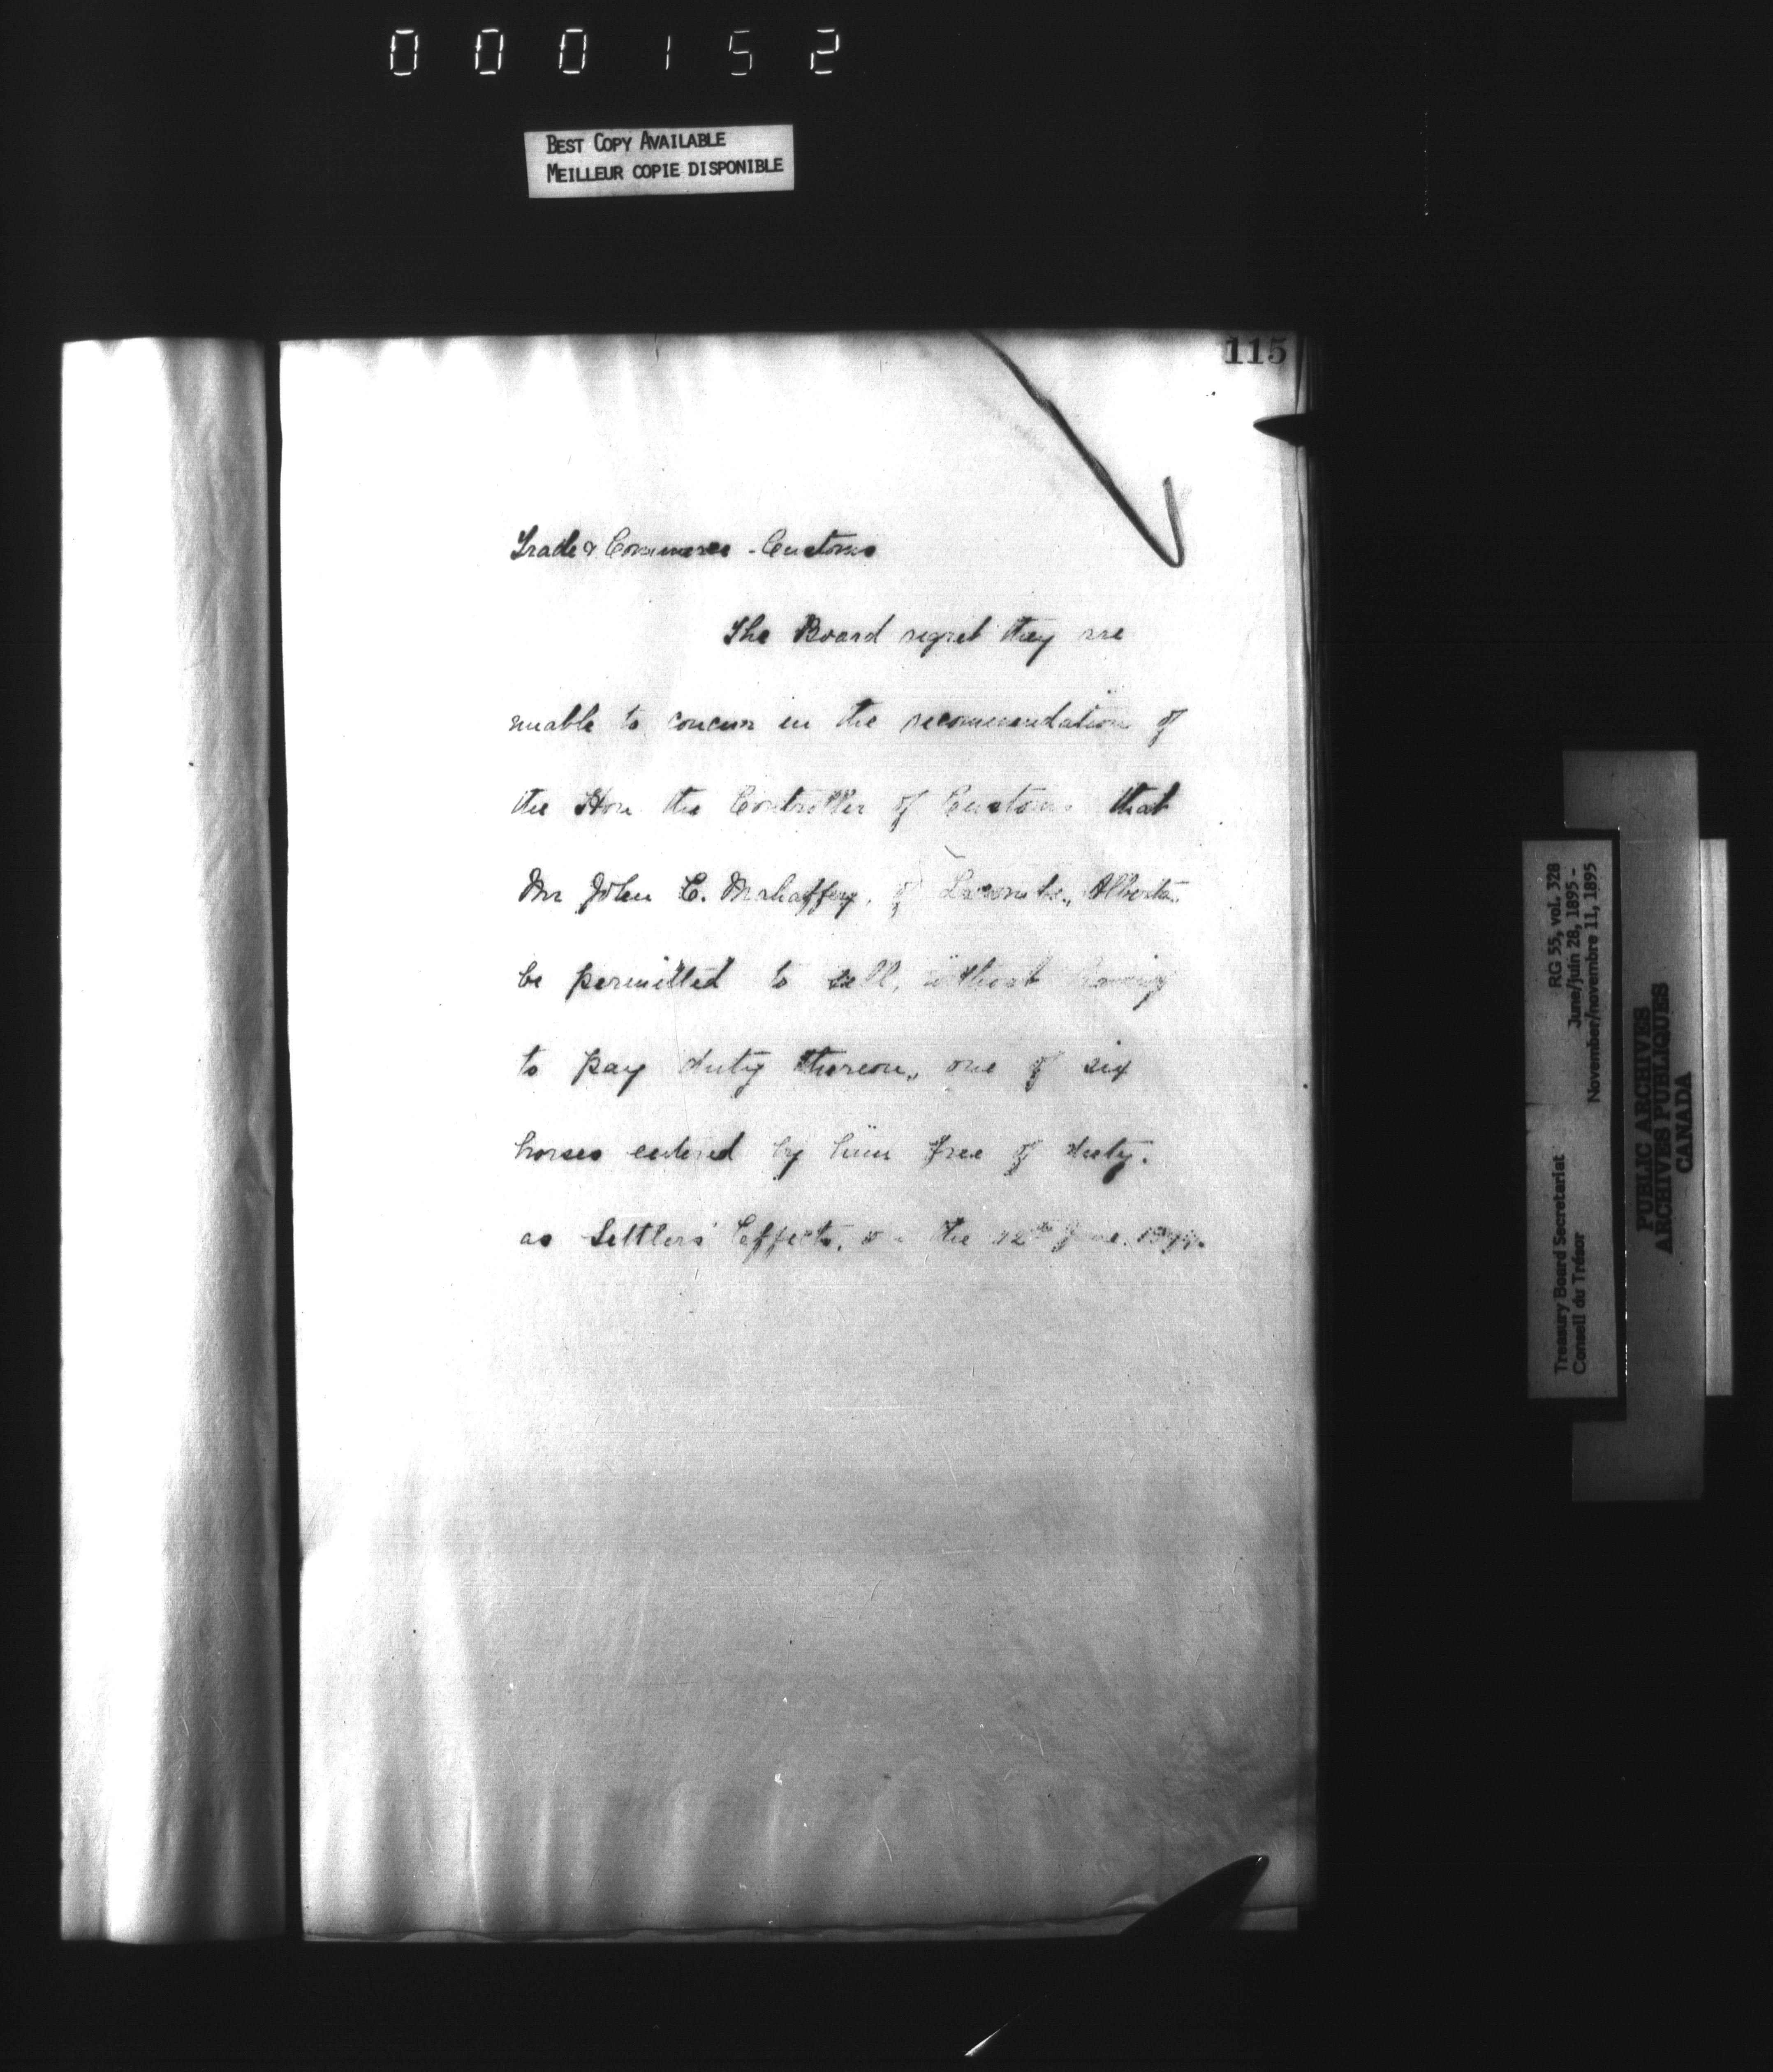 000152
BEST COPY AVAILABLE
MEILLEUR COPIE DISPONIBLE
115
Trade & Commerce - Customs
The Board regret they are
unable to concur in the recommendation of
the Hon the Controller of Customs that
Mr John C. Mahaffey, of Lacombe, Alberta
be permitted to sell, without having
to pay duty thereon, one of six
horses entered by him free of duty.
as Settlers' Effects, on the 12th June
Treasury Board Secretariat RG 55, vol. 328
Conseil du Trésor June/juin 28, 1895 -
November/novembre 11, 1895
PUBLIC ARCHIVES
ARCHIVES PUBLIQUES
CANADA